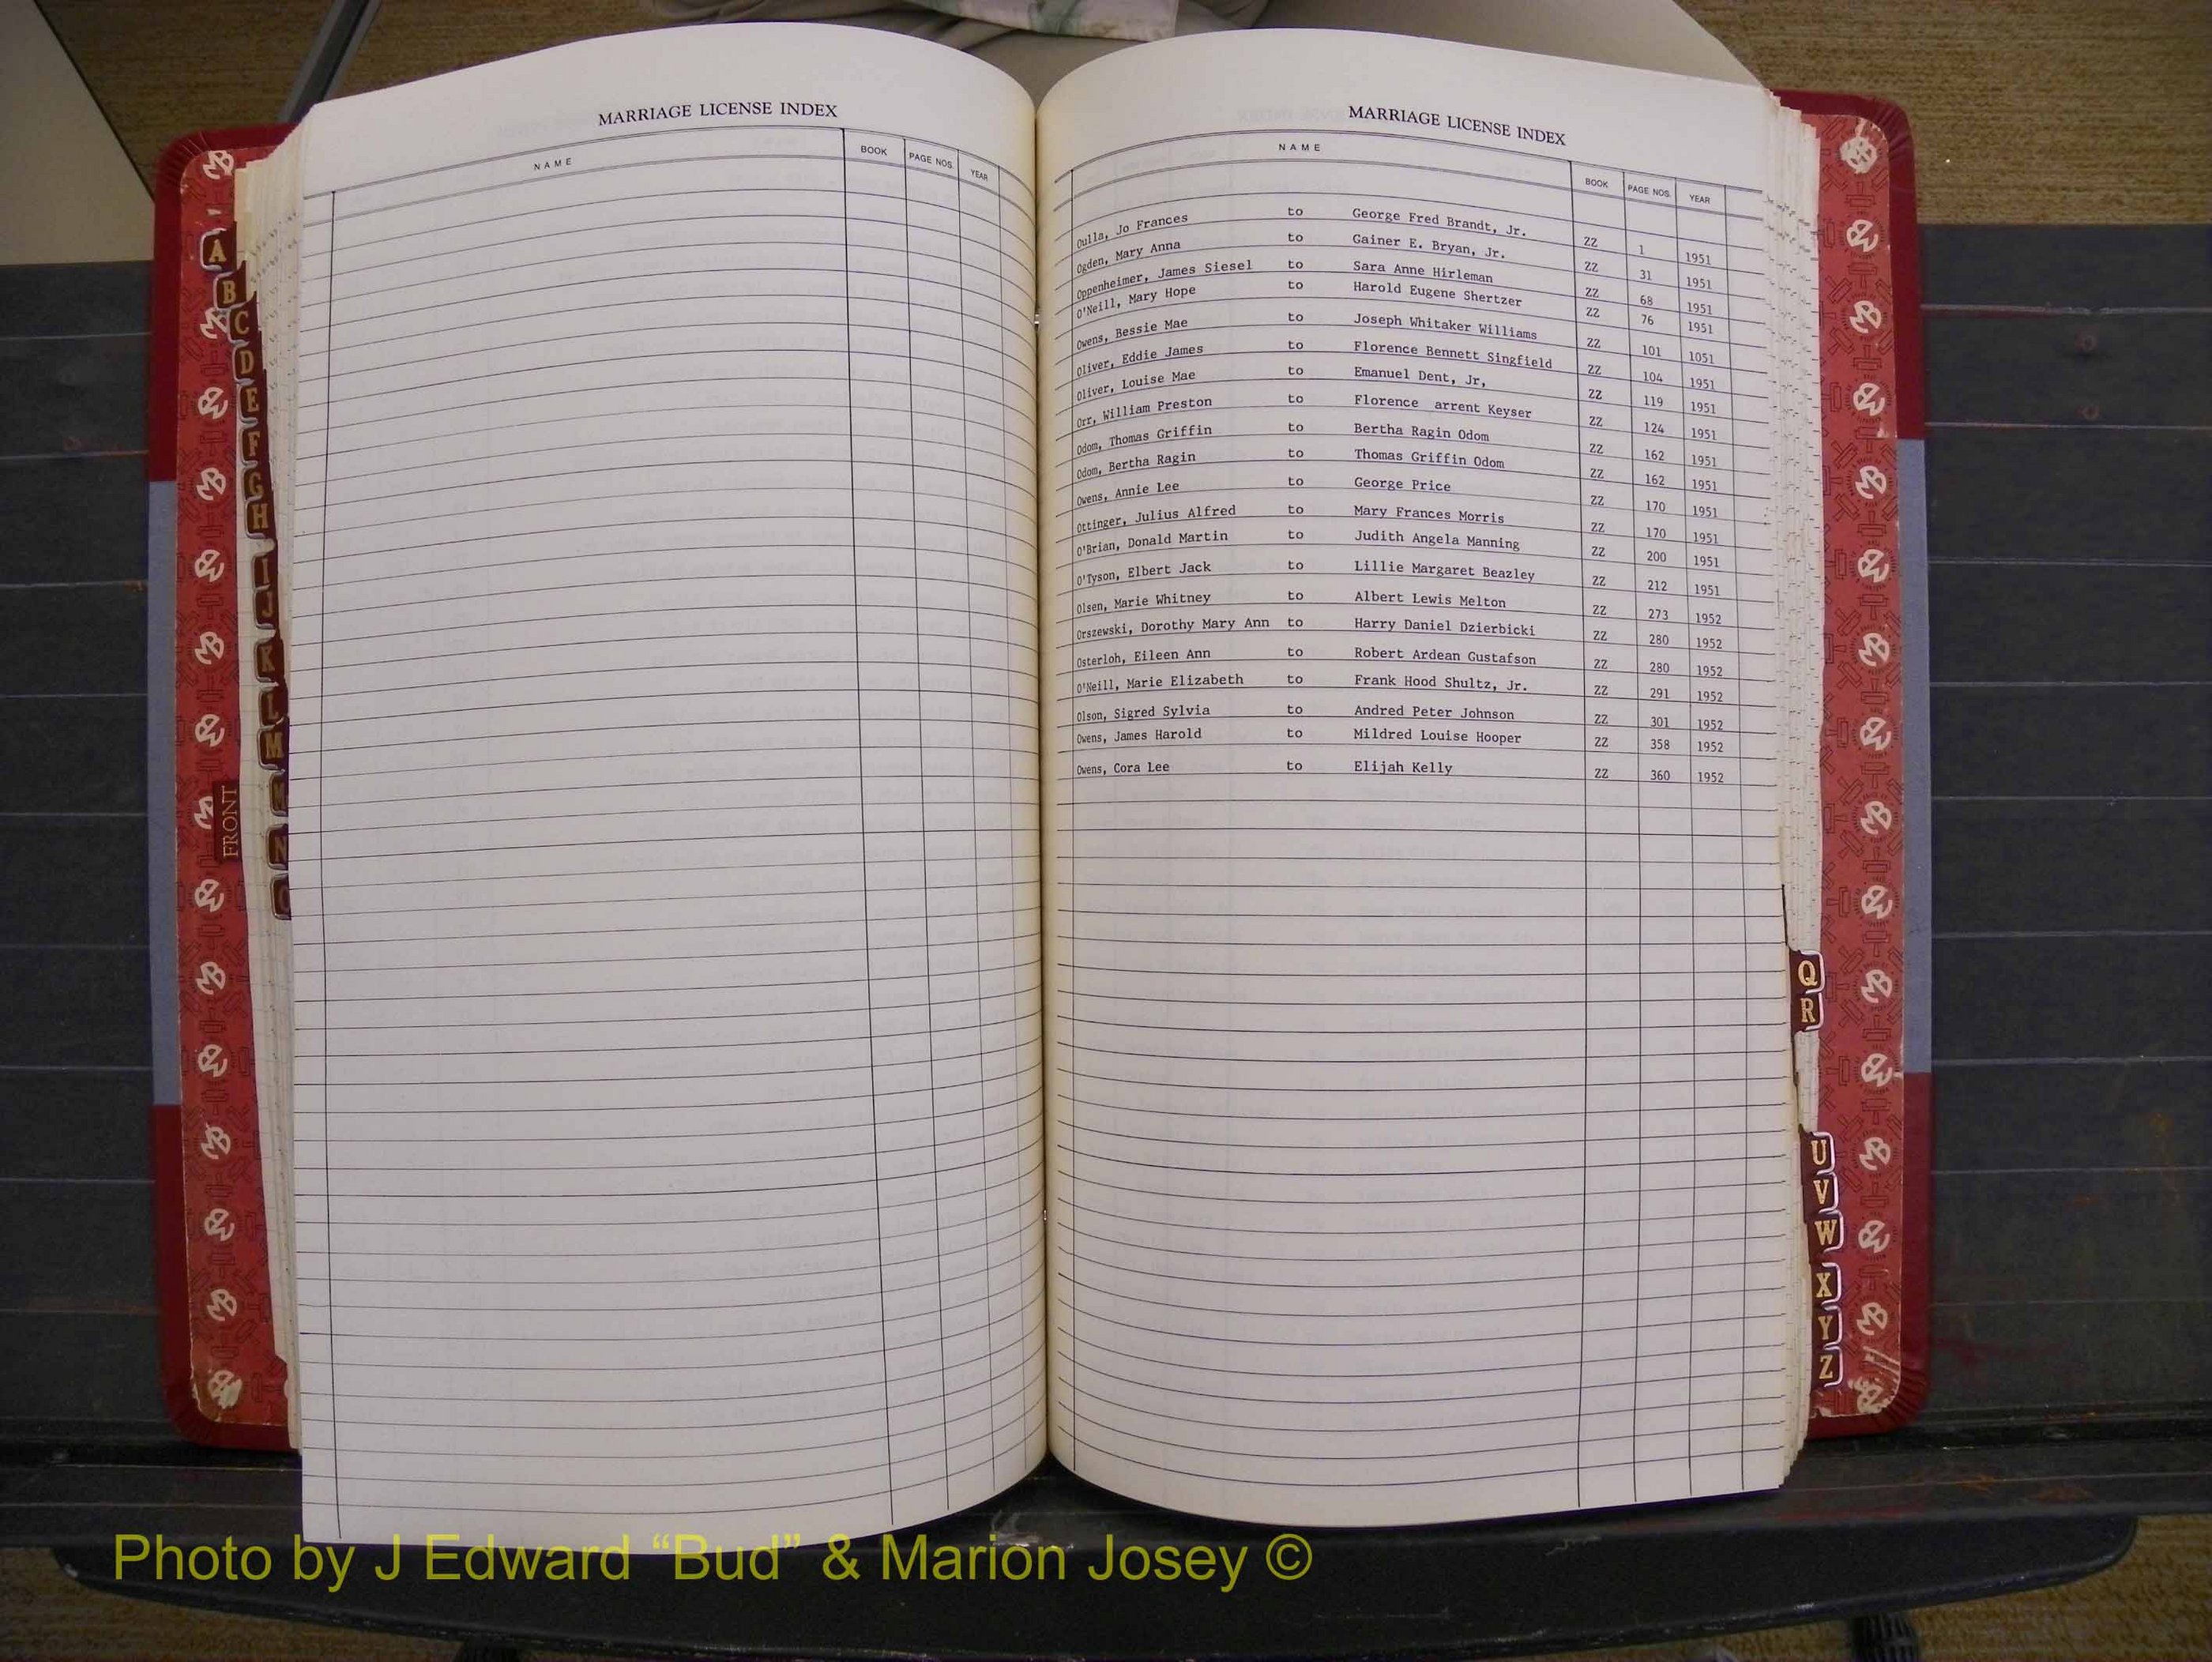 MARRIAGE LICENSE INDEX
NAME BOOK PAGE NOS. YEAR
MARRIAGE LICENSE INDEX
NAME BOOK PAGE NOS. YEAR
Oulla, Jo Frances to George Fred Brandt, Jr. ZZ 1 1951
Ogden, Mary Anna to Gainer E. Bryan, Jr. ZZ 31 1951
Oppenheimer, James Siesel to Sara Anne Hirleman ZZ 68 1951
O'Neill, Mary Hope to Harold Eugene Shertzer ZZ 76 1951
Owens, Bessie Mae to Joseph Whitaker Williams ZZ 101 1051
Oliver, Eddie James to Florence Bennett Singfield ZZ 104 1951
Oliver, Louise Mae to Emanuel Dent, Jr, ZZ 119 1951
Orr, William Preston to Florence arrent Keyser ZZ 124 1951
Odom, Thomas Griffin to Bertha Ragin Odom ZZ 162 1951
Odom, Bertha Ragin to Thomas Griffin Odom ZZ 162 1951
Owens, Annie Lee to George Price ZZ 170 1951
Ottinger, Julius Alfred to Mary Frances Morris ZZ 170 1951
O'Brian, Donald Martin to Judith Angela Manning ZZ 200 1951
O'Tyson, Elbert Jack to Lillie Margaret Beazley ZZ 212 1951
Olsen, Marie Whitney to Albert Lewis Melton ZZ 273 1952
Orszewski, Dorothy Mary Ann to Harry Daniel Dzierbicki ZZ 280 1952
Osterloh, Eileen Ann to Robert Ardean Gustafson ZZ 280 1952
O'Neill, Marie Elizabeth to Frank Hood Shultz, Jr. ZZ 291 1952
Olson, Sigred Sylvia to Andred Peter Johnson ZZ 301 1952
Owens, James Harold to Mildred Louise Hooper ZZ 358 1952
Owens, Cora Lee to Elijah Kelly ZZ 360 1952
A
B
C
D
E
F
G
H
I
J
K
L
M
N
O
FRONT
Q
R
U
V
W
X
Y
Z
Photo by J Edward “Bud” & Marion Josey ©